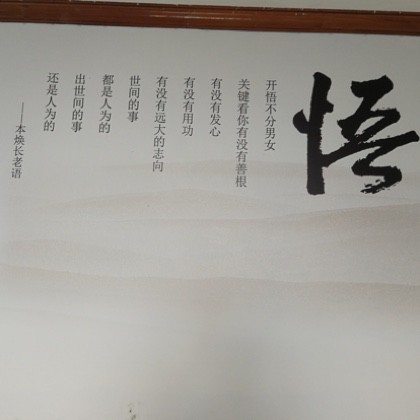 悟
开悟不分男女
关键看你有没有善根
有没有发心
有没有用功
有没有远大的志向
世间的事
都是人为的
出世间的事
还是人为的
——本焕长老语